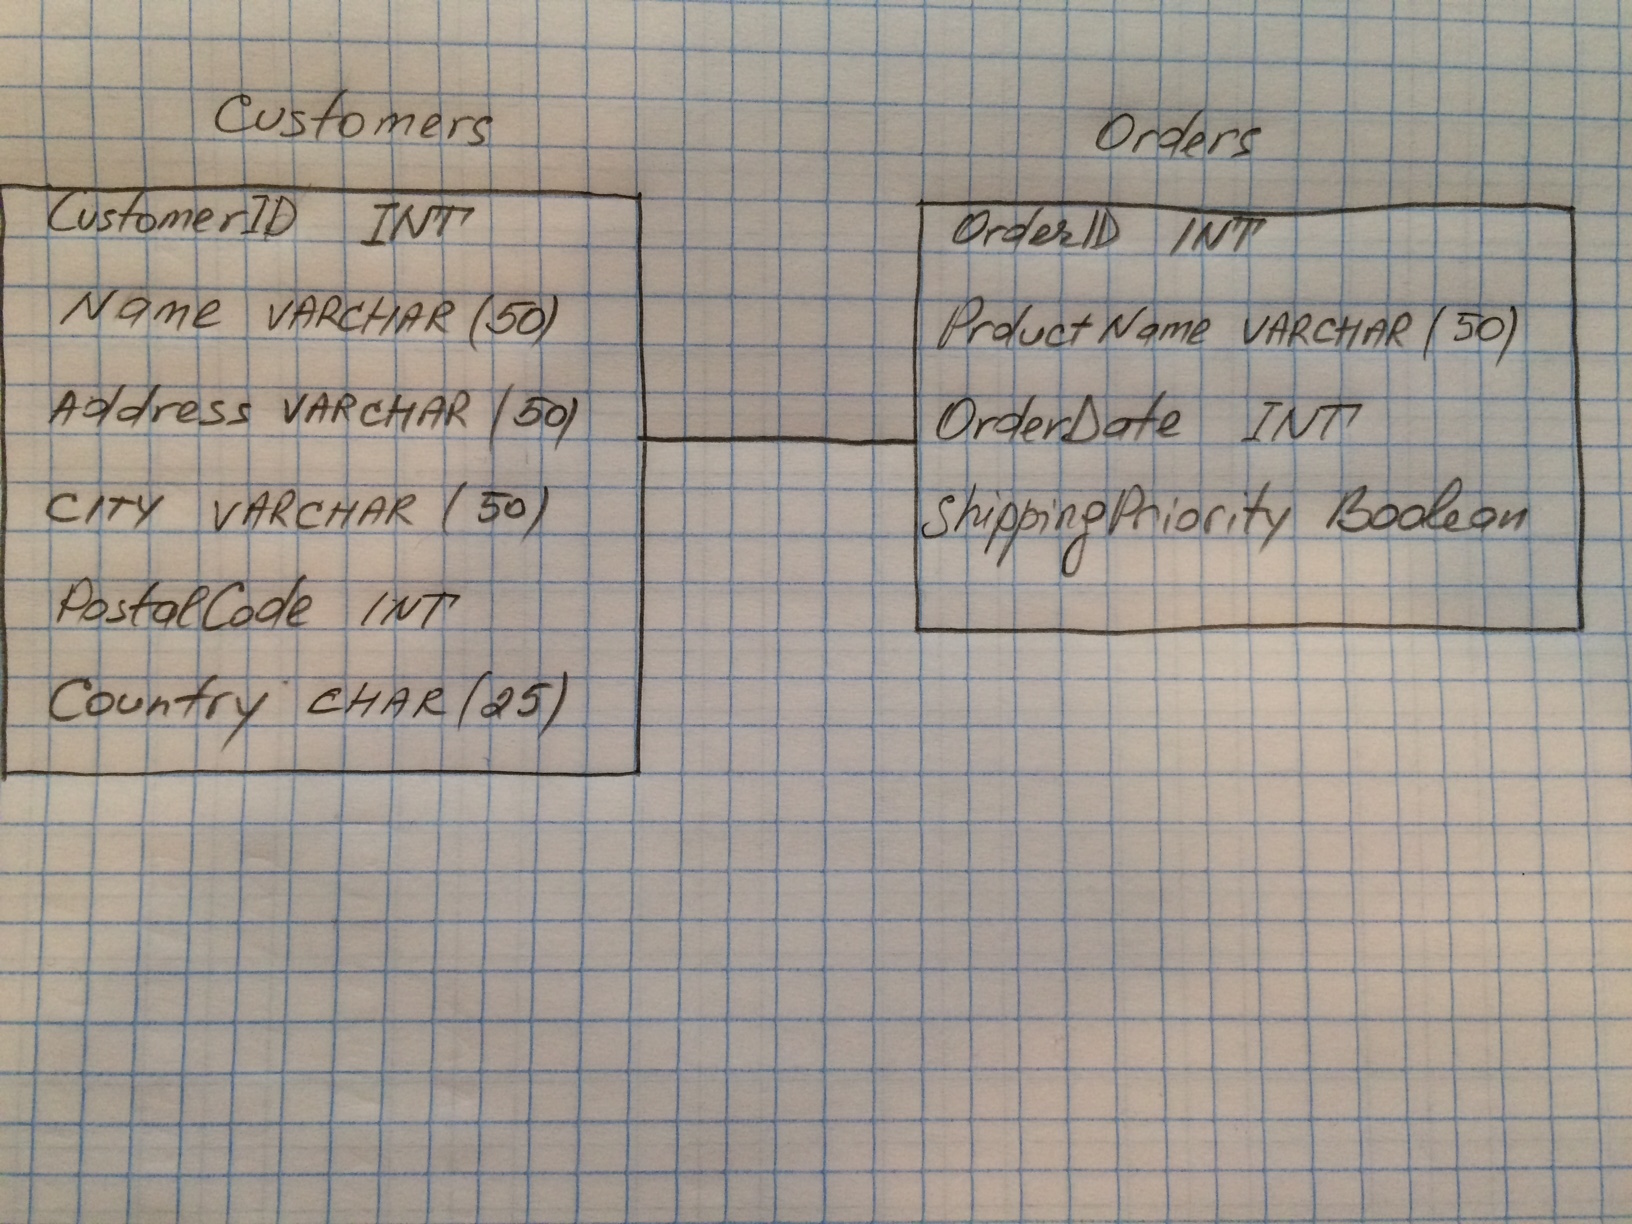 Customers
CustomerID INT
Name VARCHAR (50)
Address VARCHAR (50)
CITY VARCHAR (50)
PostalCode INT
Country CHAR (25)
Orders
OrderID INT
PrductName VARCHAR (50)
OrderDate INT
ShippingPriority Boolean